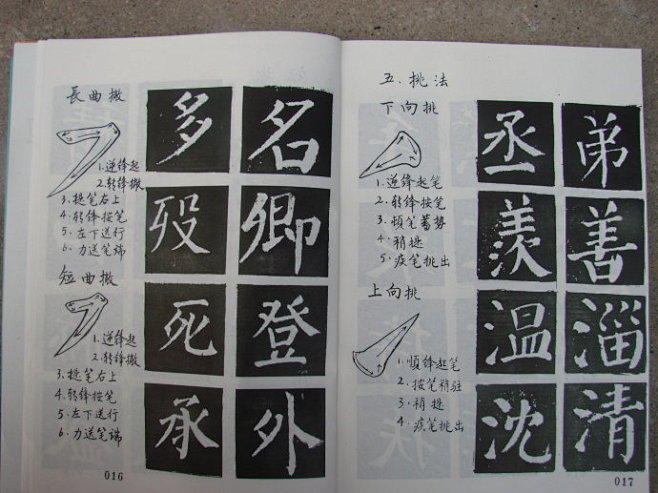 長曲撇
1.逆锋起
2.转锋撇
3.提笔右上
4.转锋按笔
5.左下送行
6.力送笔端
短曲撇
1.逆锋起
2.转锋撇
3.提笔右上
4.转锋按笔
5.左下送行
6.力送笔端
多 名
殁 卿
死 登
承 外
016
五.挑法
下向挑
1.逆锋起笔
2.转锋按笔
3.頓笔蓄势
4.稍提
5.疾笔挑出
上向挑
1.順锋起笔
2.按笔稍驻
3.稍提
4.疾笔挑出
丞 弟
羡 善
温 淄
沈 清
017